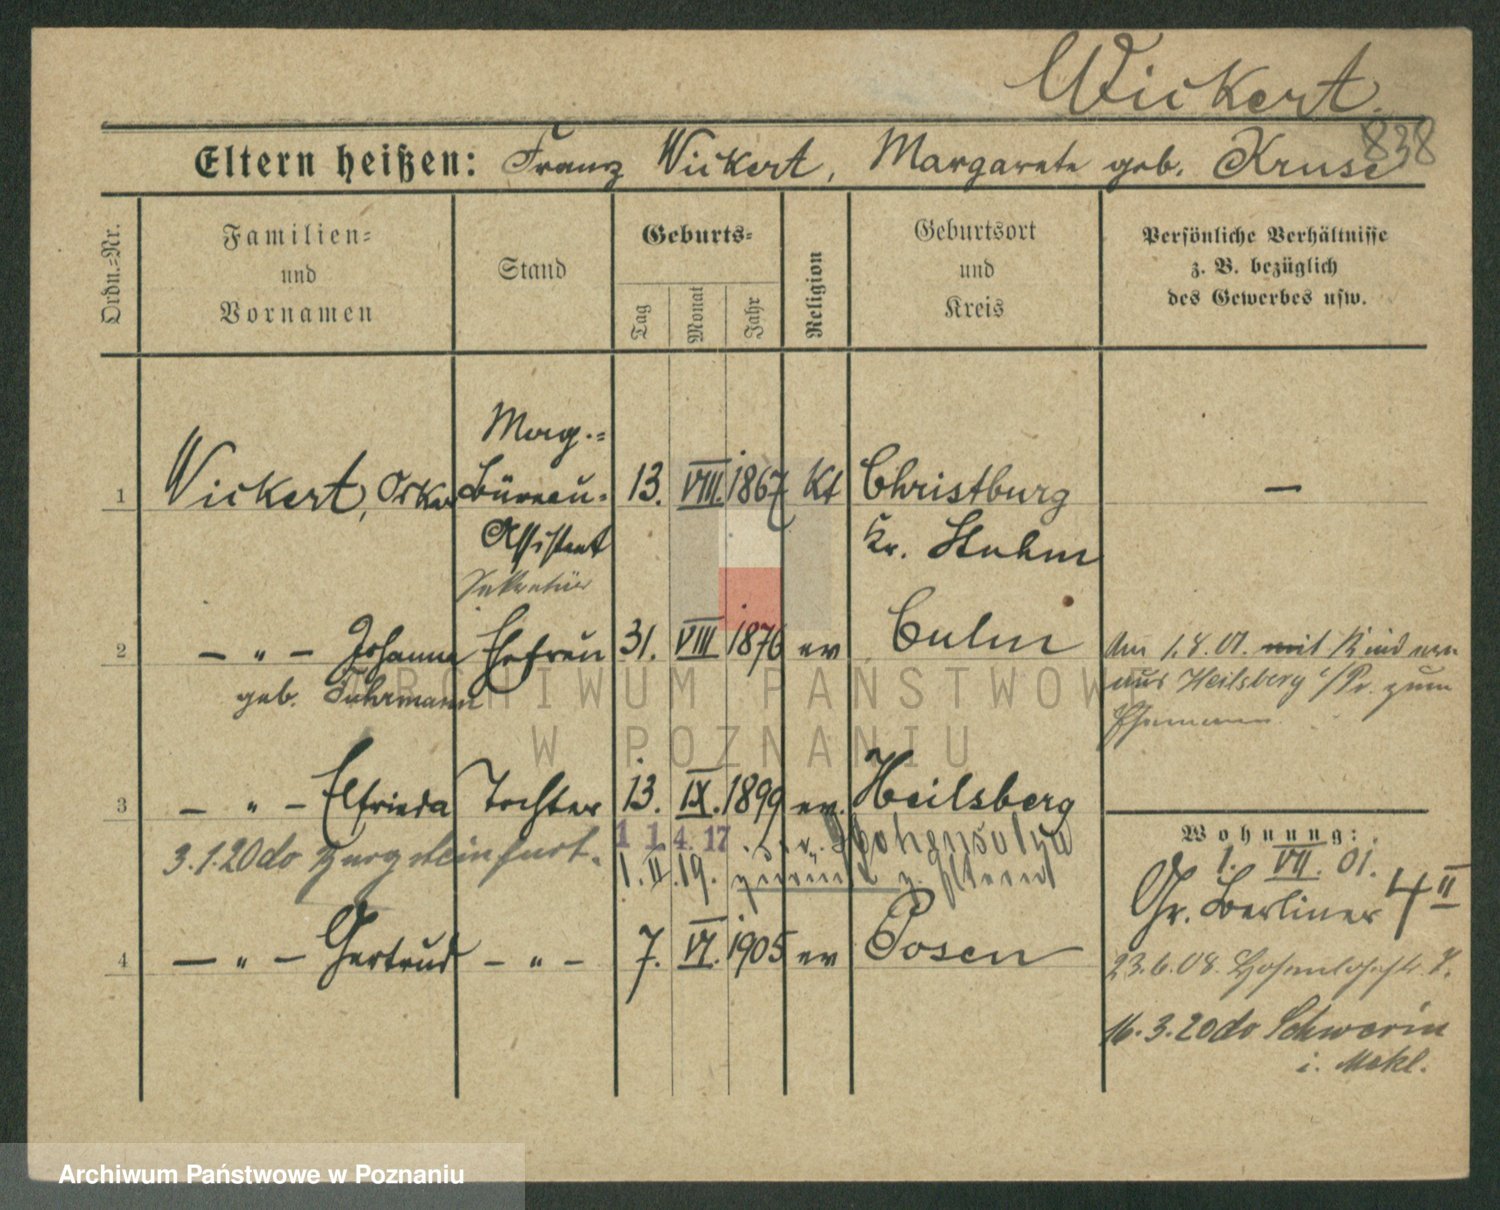 Wickert.
838
Eltern heißen: Franz Wickert, Margarete geb. Kruse
Ordn.-Nr.
Familien-
und
Vornamen
Stand
Geburts-
Tag
Monat
Jahr
Religion
Geburtsort
und
Kreis
Persönliche Verhältnisse
z. B. bezüglich
des Gewerbes usw.
Mag.-
1 Wickert, Oskar Büreau- 13. VIII. 1867 Kt Christburg —
Assistent Kr. Stuhm
Sekretär
2 — " — Johanna Ehefrau 31. VIII 1876 ev Culm
geb. Fuhrmann
Am 1.8.01. mit Kindern
aus Heilsberg /Pr. zum
Ehemann
3 — " — Elfrieda Tochter 13. IX. 1899 ev. Heilsberg
1 1.4.17 Hohensalza
3.1.20 do Burgsteinfurt. 1. II. 19. zurück z. Eltern
4 — " — Gertrud — " — 7. VI. 1905 ev Posen
Wohnung:
1. VII. 01.
Gr. Berliner 4 II
23.6.08. Hohenlohestr.
16.3.20 do Schwerin
i. Mekl.
ARCHIWUM PAŃSTWOWE
W POZNANIU
Archiwum Państwowe w Poznaniu